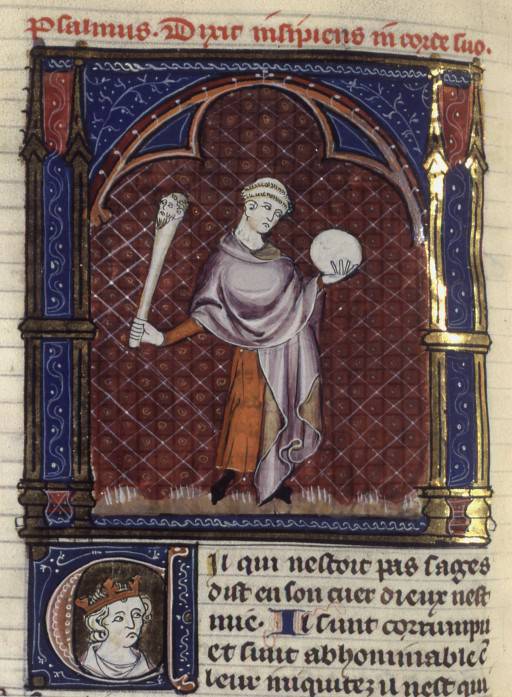 Psalmus. Dixit insipiens in corde suo.
Cil qui nestoit pas sages
dist en son cuer dieux nest
mie. Il sunt corrumpu
et sunt abhominable e
leur iniquitez il nest qui